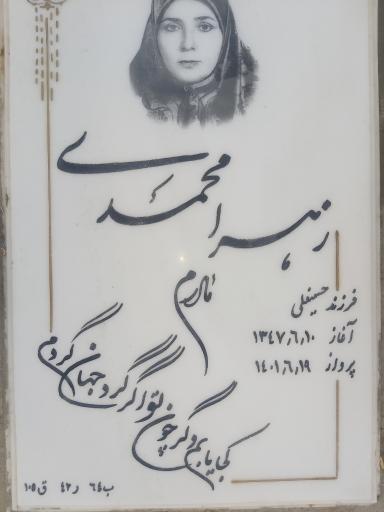 زهرا محمدی
مادرم
فرزند حسینقلی
آغاز ۱۳۴۷٫۶٫۱۰
پرواز ۱۴۰۱٫۶٫۱۹
کجا یابم دگر چون تو اگر گرد جهان گردم
ب۶۴ ر۴۲ ق۱۰۵